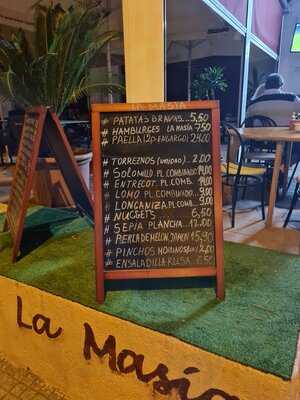 LA MASIA
# PATATAS BRAVAS... 5,50
# HAMBURGES LA MASÍA 7,50
# PAELLA (2P-ENCARGO) 24,00
# TORREZNOS (UNIDAD) 2,00
# SOLOMILLO PL COMBINADO 14,00
# ENTRECOT PL COMB. 14,00
# LOMO PL COMBINADO 9,00
# LONGANIZA PL COMB. 9,00
# NUGGETS 6,50
# SEPIA PLANCHA... 12,00
# PIERCA DE MELON, JAMON 15,90
# PINCHOS MORUNOS 2,00
# ENSALADILLA RUSA 6,50
La Masía